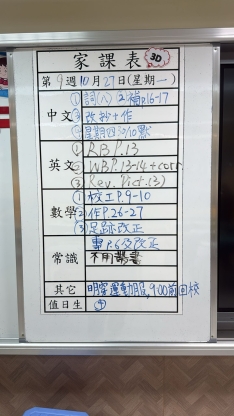 家課表 3D
第9週10月27日(星期一)
中文 ①詞(八) ②補p.16-17
③改抄+作
④星期四30/10默
英文 ① RB P.13
② WB P.13-14 + corr
③ Rev. Dict.(3)
數學 ① 校工P.9-10
② 作P.26-27
③ 足跡改正
常識 書P.6及改正
不用帶書
其它 明穿運動服,9:00前回校
值日生 ④